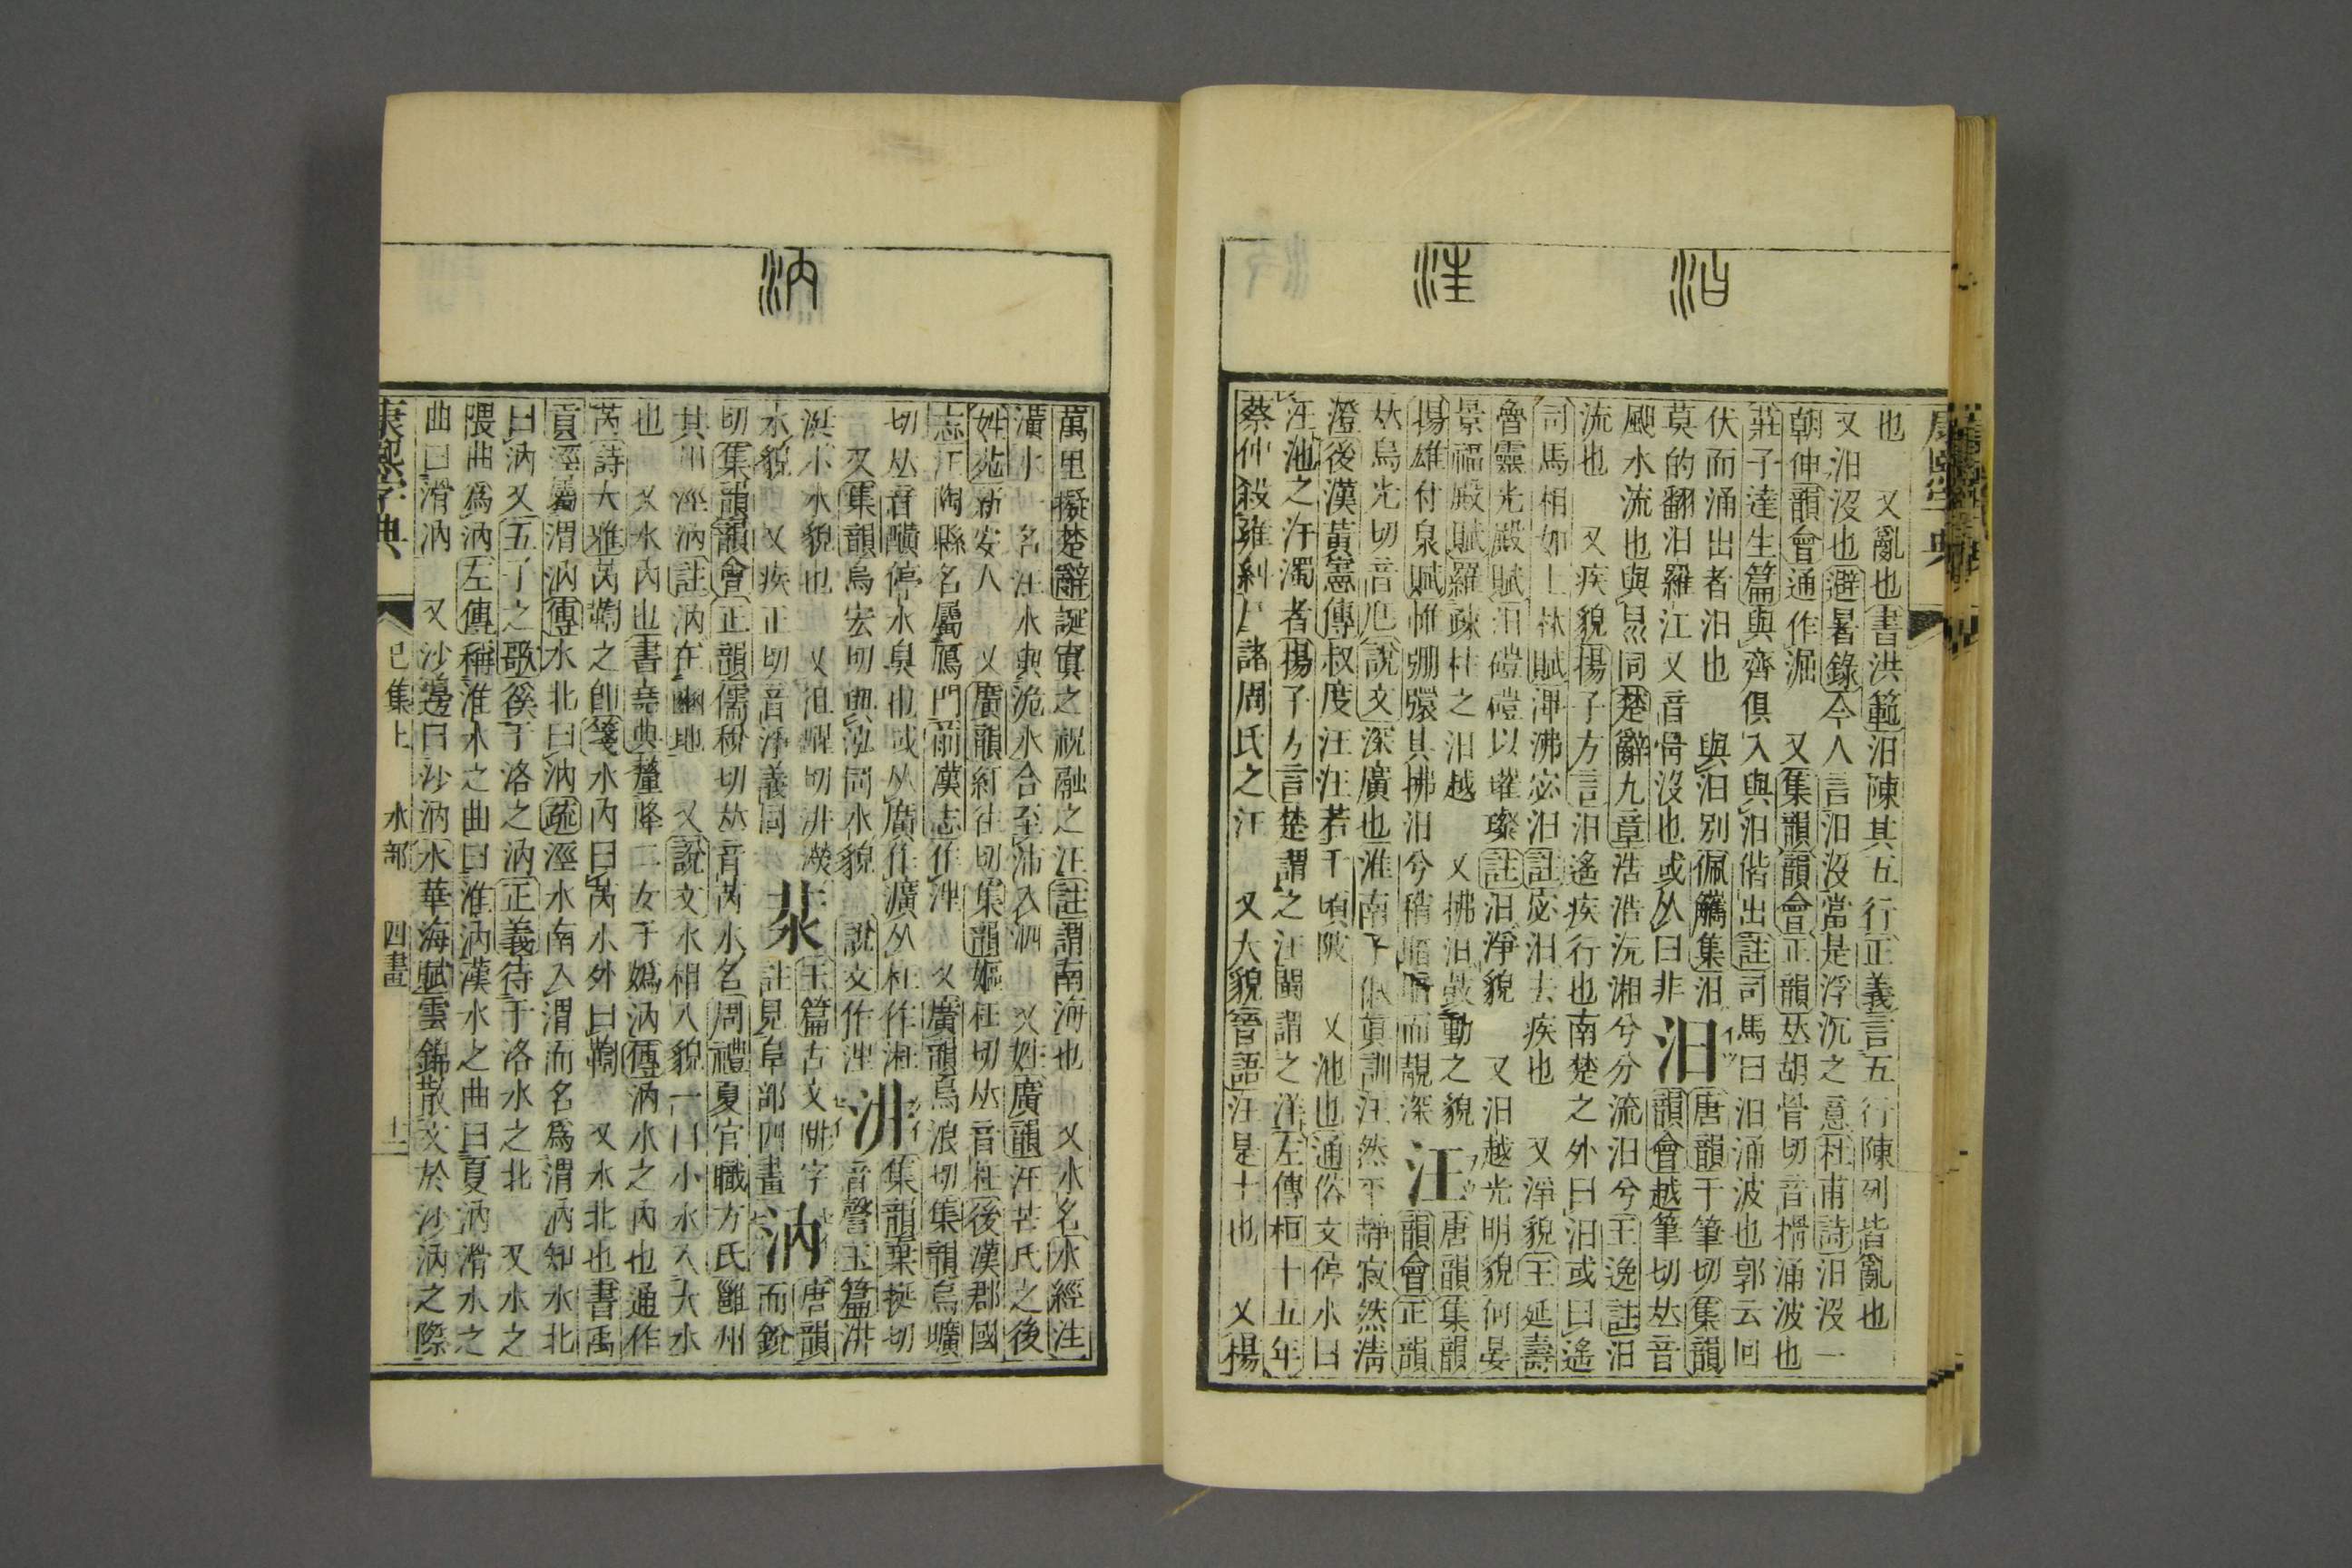 汩
汪
汭
也　又亂也書洪範汩陳其五行正義言五行陳列皆亂也
又汩沒也避暑錄今人言汩沒當是浮沉之意杜甫詩汩沒一
朝伸韻會通作淈　又集韻韻會正韻𠀤胡骨切音搰涌波也
莊子達生篇與齊俱入與汩偕出註司馬曰汩涌波也郭云回
伏而涌出者汩也　與汨別佩觿集汨
汨
唐韻于筆切集韻
莫的翻汨羅江又音骨沒也或从曰非
韻會越筆切𠀤音
颶水流也與㫕同楚辭九章浩浩沅湘兮分流汨兮王逸註汨
流也　又疾貌揚子方言汨遙疾行也南楚之外曰汨或曰遙
司馬相如上林賦渾沸宓汨註宓汨去疾也　又淨貌王延壽
魯靈光殿賦汨磑磑以璀璨註汨淨貌　又汨越光明貌何晏
景福殿賦羅疎柱之汨越　又拂汨鼓動之貌
汪
唐韻集韻
揚雄甘泉賦帷弸彋其拂汨兮稍暗暗而靚深
韻會正韻
𠀤烏光切音尩說文深廣也淮南子俶眞訓汪然平靜寂然淸
澄後漢黃憲傳叔度汪汪若千頃陂　又池也通俗文停水曰
汪池之汙濁者揚子方言楚謂之汪閩謂之洋左傳桓十五年
蔡仲殺雍糾尸諸周氏之汪　又大貌晉語汪是土也　又楊
萬里擬楚辭誕寘之祝融之汪註謂南海也　又水名水經注
潢水一名汪水與泡水合至沛入泗　又姓廣韻汪芒氏之後
姓苑新安人　又廣韻紆往切集韻嫗枉切𠀤音枉後漢郡國
志汪陶縣名屬鴈門前漢志作㲿　又廣韻烏浪切集韻烏曠
切𠀤音醠停水臭也或从廣作瀇从枉作㴏
汫
集韻棄挺切
又集韻烏宏切與泓同水貌　說文作㲿
音謦玉篇汫
涬小水貌也　又徂醒切汫濙
水貌　又疾正切音淨義同
汬
玉篇古文阱字
註見阜部四畫
汭
唐韻
而銳
切集韻韻會正韻儒稅切𠀤音芮水名周禮夏官職方氏雝州
其川涇汭註汭在豳地　又說文水相入貌一曰小水入大水
也　又水內也書堯典釐降二女于嬀汭傳汭水之內也通作
芮詩大雅芮鞫之卽箋水內曰芮水外曰鞫　又水北也書禹
貢涇屬渭汭傳水北曰汭疏涇水南入渭而名爲渭汭知水北
曰汭又五子之歌徯于洛之汭正義待于洛水之北　又水之
隈曲爲汭左傳稱淮水之曲曰淮汭漢水之曲曰夏汭滑水之
曲曰滑汭　又沙邊曰沙汭木華海賦雲錦散文於沙汭之際
康熙字典
巳集上　水部　四畫　十二